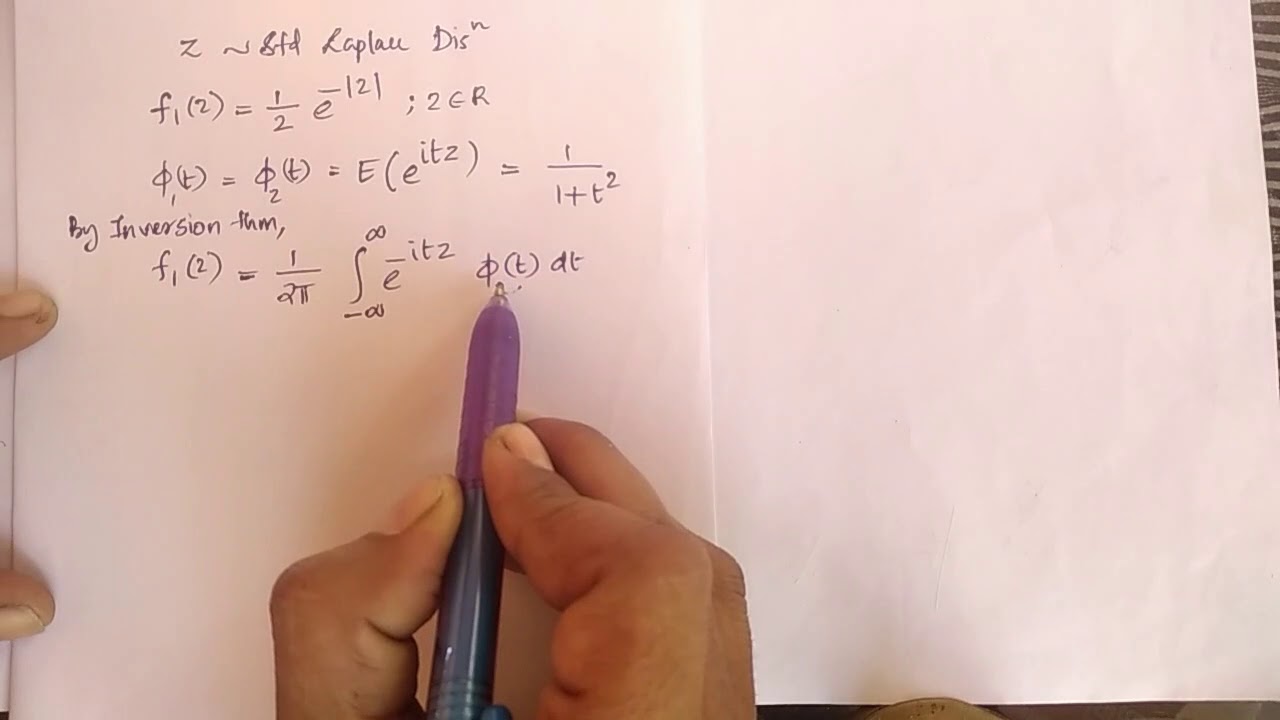 z ~ Std Laplace Disⁿ
f₁(z) = 1/2 e^{-|z|} ; z ∈ R
ϕ₁(t) = ϕ_z(t) = E(e^{itz}) = 1/(1+t²)
By Inversion thm,
f₁(z) = 1/2π ∫_{-∞}^{∞} e^{-itz} ϕ(t) dt